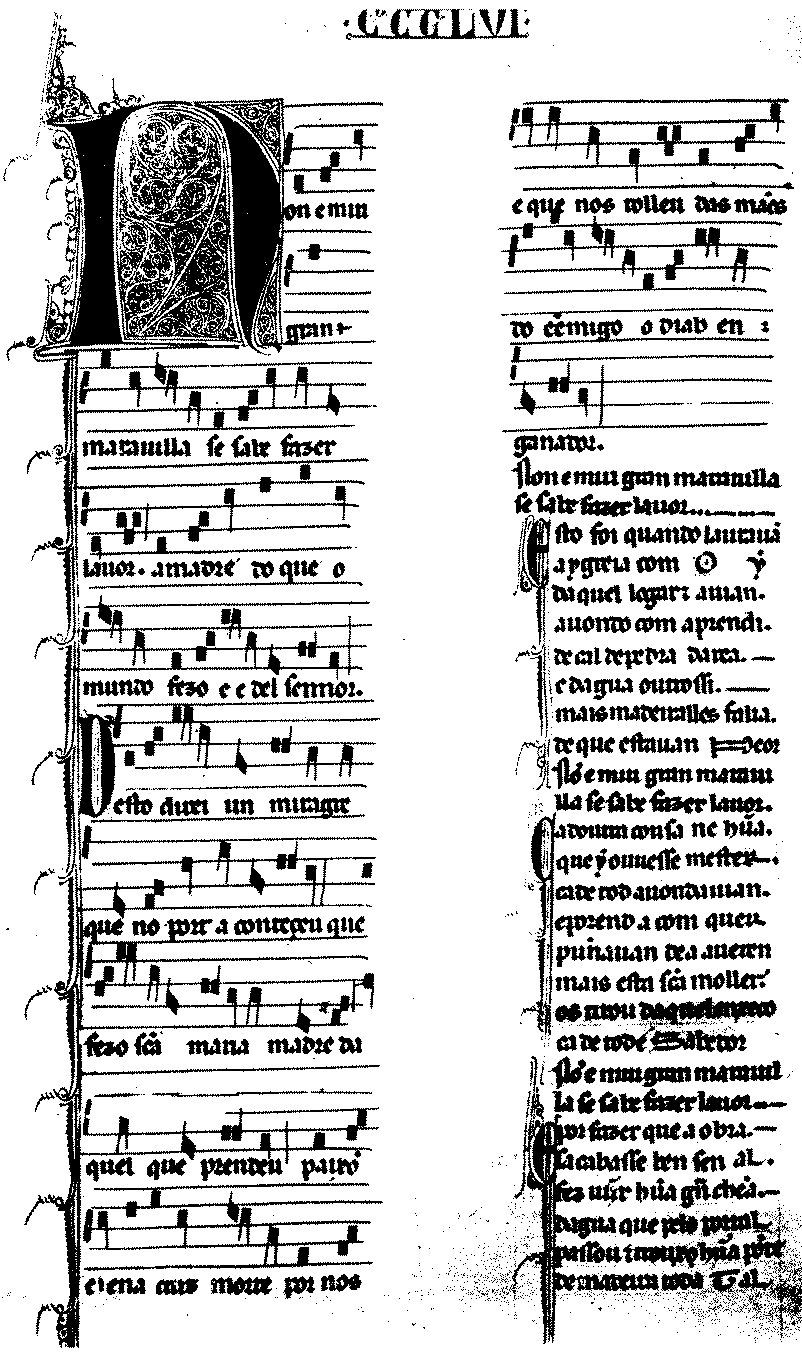 ·CCCLVI·
Non e mui
gran
marauilla se sabe fazer
lauor. a madre do que o
mundo fezo e e del sennor.
Desto direi un miragre
que no port a conteçeu que
fezo sc̃a maria madre da
quel que prendeu paixõ
e ena cruz morte por nos
e que nos tolleu das mãos
do ẽemigo o diab en
ganador.
Non e mui gran marauilla
se sabe fazer lauor
Esto foi quando laurauã
a ygreia com
daquel logar; auian.
auondo com aprendi.
de cal de pedra darẽa.
e dagua outrossi.
mais madeira lles falia.
de que estauan
Nõ e mui gran maraui
lla se sabe fazer lauor.
que y ouuesse mester.
ca de tod auondauan.
e prend a com quer
punnauan de a aueren
mais esta sc̃a moller
os tirou daquel
ca de tod e sabedor
Nõ e mui gran marauil
la se sabe fazer lauor
por fazer que a obra.
sacabasse ben sen al.
fez uĩjr hũa grã chẽa.
dagua que pelo portal
passou e trouxo hũa põte
de madeira toda tal